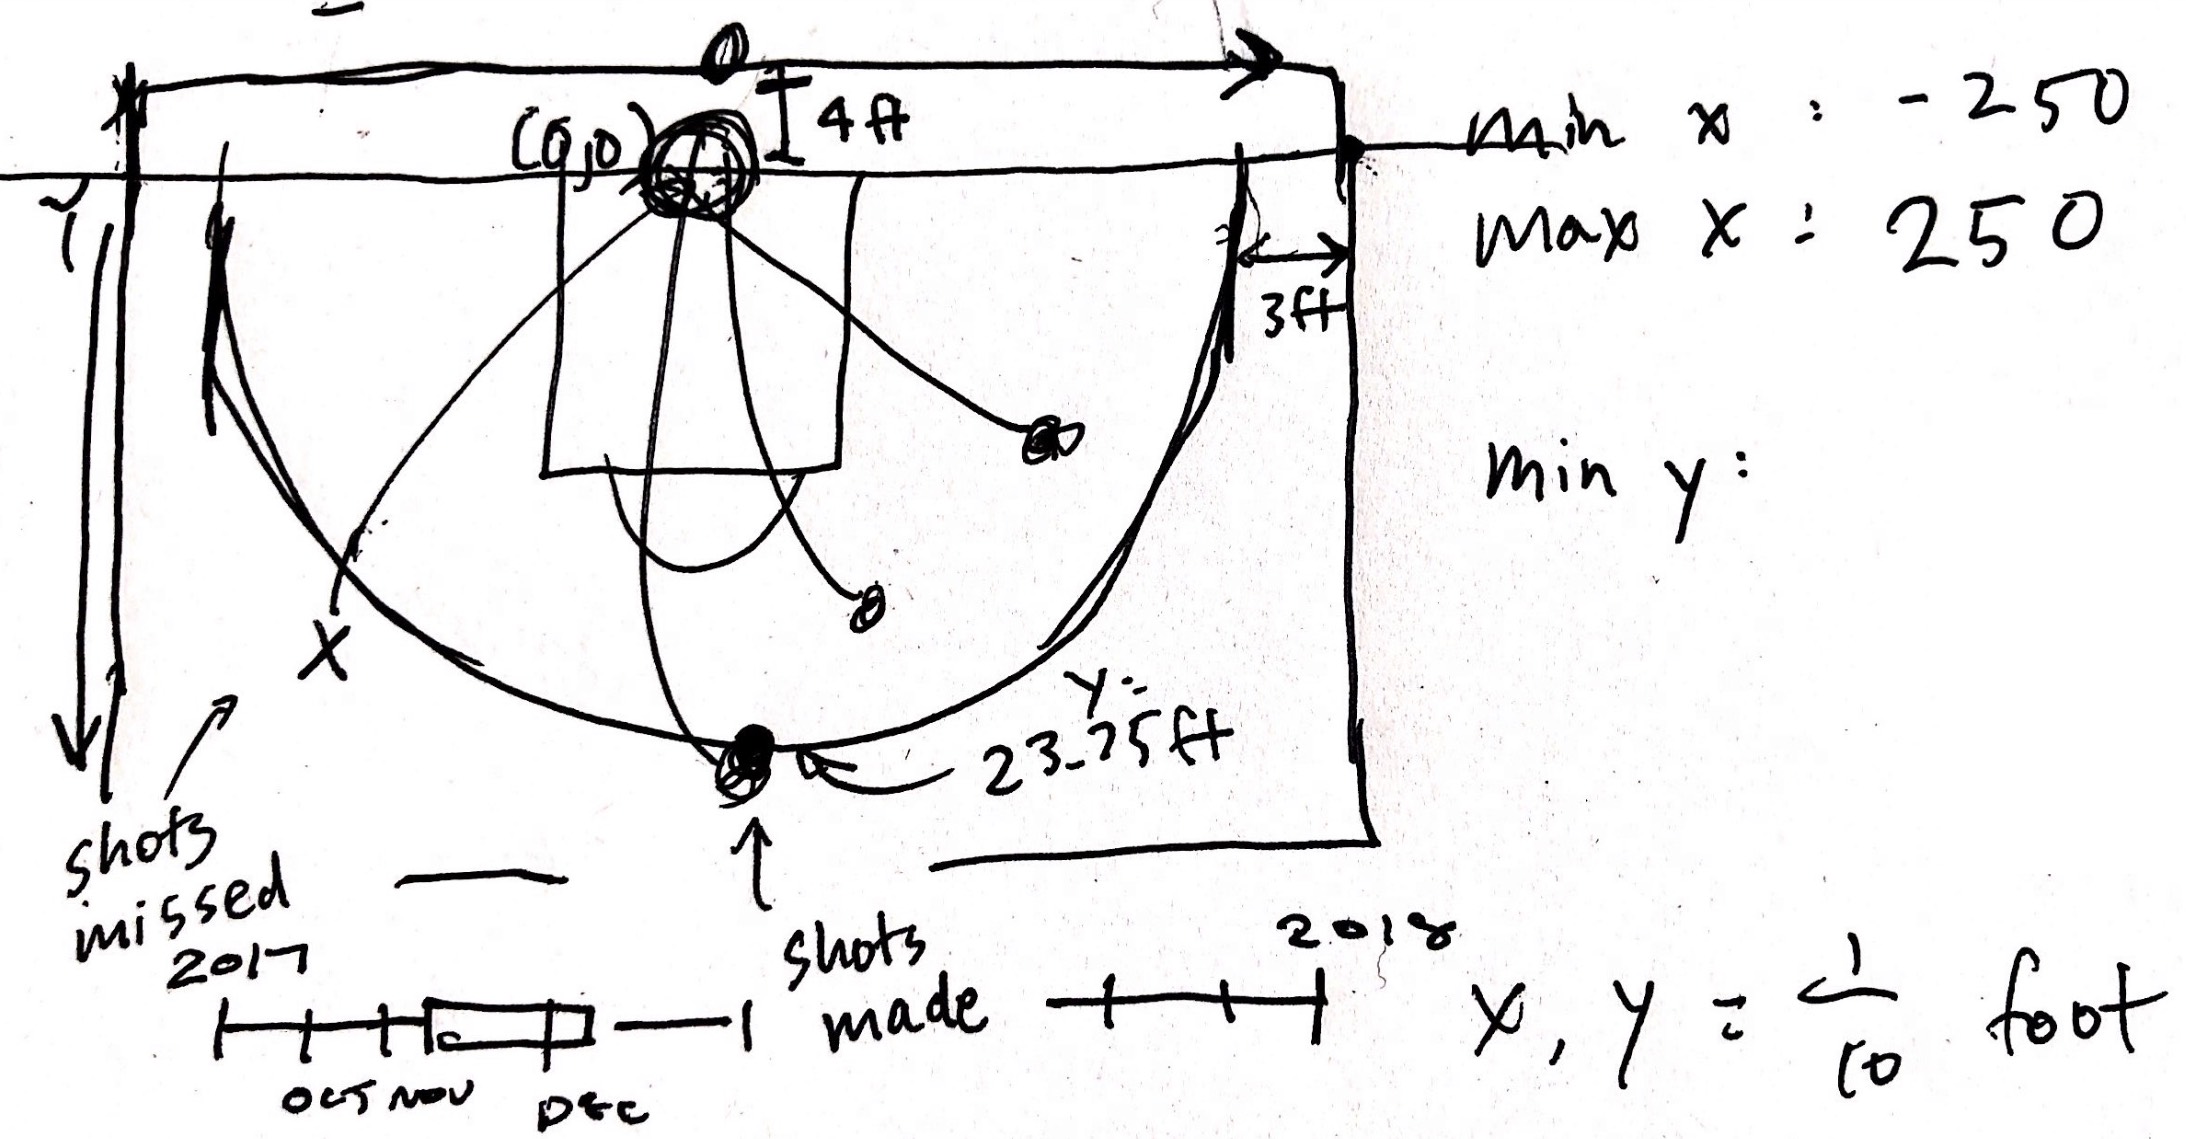 0
(0,0)
4 ft
min x : -250
max x : 250
3ft
min y:
y=
23.75ft
X
shots
missed
shots
made
2017
2018
OCT NOV
DEC
x, y = 1/10 foot